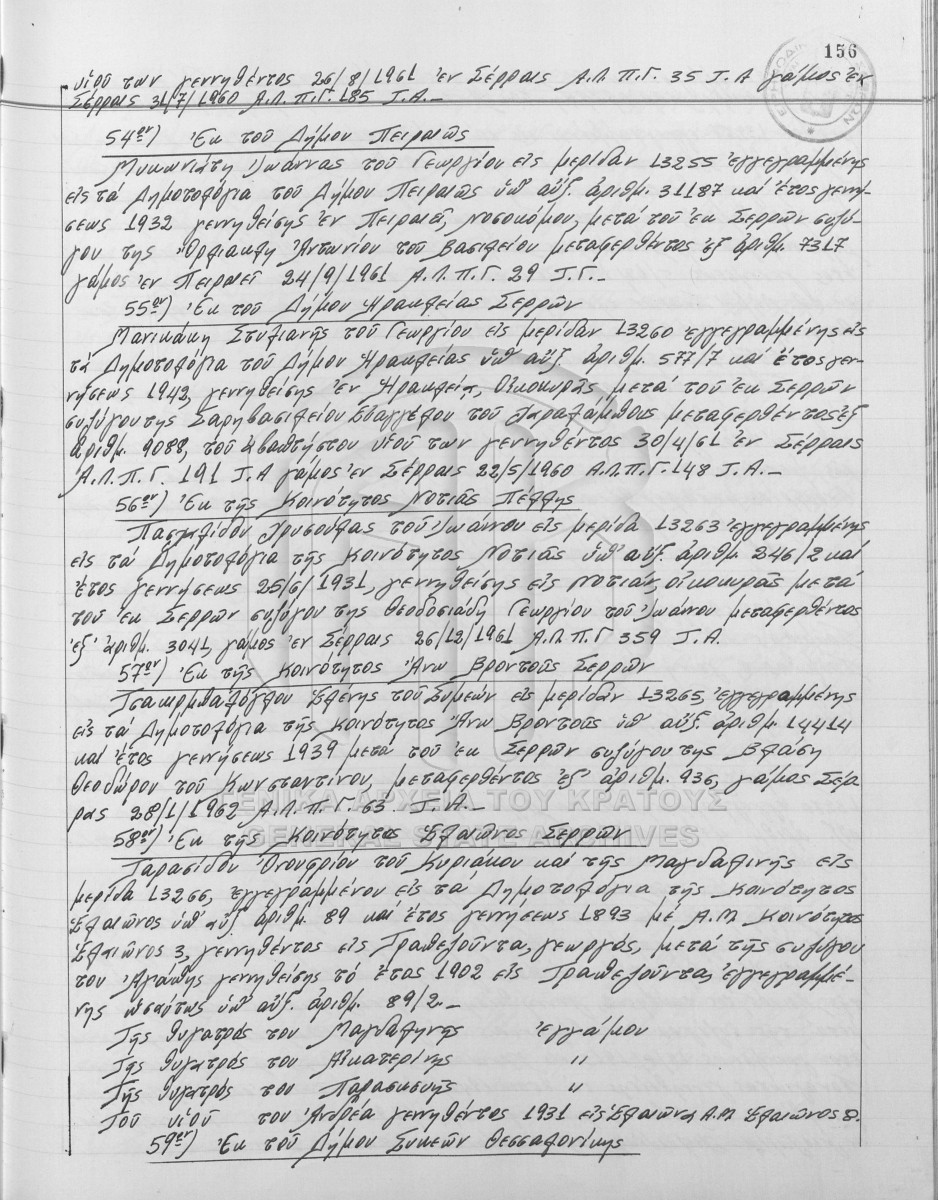 156
υἱοῦ των γεννηθέντος 26/8/1961 ἐν Σέρραις Α.Λ.Π.Γ. 35 Τ.Α γάμος ἐν
Σέρραις 31/7/1960 Α.Λ.Π.Γ. 185 Τ.Α.-
54ον) Ἐκ τοῦ Δήμου Πειραιῶς
Μυκωνιάτη Ἰωάννας τοῦ Γεωργίου εἰς μερίδαν 13255 ἐγγεγραμμένης
εἰς τά Δημοτολόγια τοῦ Δήμου Πειραιῶς ὑπ' αὔξ. ἀριθμ. 31187 καί ἔτος γεννή-
σεως 1932 γεννηθείσης ἐν Πειραιεῖ, νοσοκόμου, μετά τοῦ ἐκ Σερρῶν συζύ-
γου της Ἀντωνίου τοῦ Βασιλείου μεταφερθέντος ἐξ ἀριθμ. 7317
γάμος ἐν Πειραιεῖ 24/9/1961 Α.Λ.Π.Γ. 29 Τ.Γ.-
55ον) Ἐκ τοῦ Δήμου Ἡρακλείας Σερρῶν
Μανικάκη Στυλιανῆς τοῦ Γεωργίου εἰς μερίδαν 13260 ἐγγεγραμμένης εἰς
τά Δημοτολόγια τοῦ Δήμου Ἡρακλείας ὑπ' αὔξ. ἀριθμ. 577/7 καί ἔτος γεν-
νήσεως 1942, γεννηθείσης ἐν Ἡρακλείᾳ, Οἰκοκυρᾶς μετά τοῦ ἐκ Σερρῶν
συζύγου της Σαρηβασιλείου Εὐαγγέλου τοῦ Χαραλάμπους μεταφερθέντος ἐξ
ἀριθμ. 9088, τοῦ ἀβαπτήστου υἱοῦ των γεννηθέντος 30/4/61 ἐν Σέρραις
Α.Λ.Π.Γ. 191 Τ.Α γάμος ἐν Σέρραις 22/5/1960 Α.Λ.Π.Γ. 148 Τ.Α.-
56ον) Ἐκ τῆς Κοινότητος Νοτιᾶς Πέλλης
Πασχαλίδου Χρυσούλας τοῦ Ἰωάννου εἰς μερίδα 13263 ἐγγεγραμμένης
εἰς τά Δημοτολόγια τῆς Κοινότητος Νοτιᾶς ὑπ' αὔξ. ἀριθμ. 246/2 καί
ἔτος γεννήσεως 25/6/1931, γεννηθείσης εἰς Νοτιάν, οἰκοκυρᾶς μετά
τοῦ ἐκ Σερρῶν συζύγου της Θεοδοσιάδη Γεωργίου τοῦ Ἰωάνου μεταφερθέντος
ἐξ' ἀριθμ. 3041, γάμος ἐν Σέρραις 26/12/1961 Α.Λ.Π.Γ 359 Τ.Α.
57ον) Ἐκ τῆς Κοινότητος Ἄνω Βροντοῦς Σερρῶν
Ἑλένης τοῦ Συμεών εἰς μερίδαν 13265, ἐγγεγραμμένης
εἰς τά Δημοτολόγια τῆς Κοινότητος Ἄνω Βροντοῦς ὑπ' αὔξ. ἀριθμ. 14414
καί ἔτος γεννήσεως 1939 μετά τοῦ ἐκ Σερρῶν συζύγου της Βλάση
Θεοδώρου τοῦ Κωνσταντίνου, μεταφερθέντος ἐξ' ἀριθμ. 936, γάμος Σέρ-
ρας 28/1/1962 Α.Λ.Π.Γ. 63 Τ.Α.-
ΓΕΝΙΚΑ ΑΡΧΕΙΑ ΤΟΥ ΚΡΑΤΟΥΣ
58ον) Ἐκ τῆς Κοινότητος Ἐλαιῶνος Σερρῶν
GENERAL STATE ARCHIVES
Ταρασίδου Ὀνουφρίου τοῦ Κυριάκου καί τῆς Μαγδαληνῆς εἰς
μερίδα 13266, ἐγγεγραμμένου εἰς τά Δημοτολόγια τῆς Κοινότητος
Ἐλαιῶνος ὑπ' αὔξ. ἀριθμ. 89 καί ἔτος γεννήσεως 1893 μέ Α.Μ. Κοινότητος
Ἐλαιῶνος 3, γεννηθέντος εἰς Τραπεζοῦντα, γεωργός, μετά τῆς συζύγου
του Ἀγάπης γεννηθείσης τό ἔτος 1902 εἰς Τραπεζοῦντα, ἐγγεγραμμέ-
νης ὡσαύτως ὑπ' αὔξ. ἀριθμ. 89/2.-
Τῆς θυγατρός του Μαγδαληνῆς ἐγγάμου
Τῆς θυγατρός του Αἰκατερίνης "
Τῆς θυγατρός του Παρασκευῆς "
Τοῦ υἱοῦ του Ἀνδρέα γεννηθέντος 1931 εἰς Ἐλαιῶνα Α.Μ. Ἐλαιῶνος 2.
59ον) Ἐκ τοῦ Δήμου Συκεῶν Θεσσαλονίκης